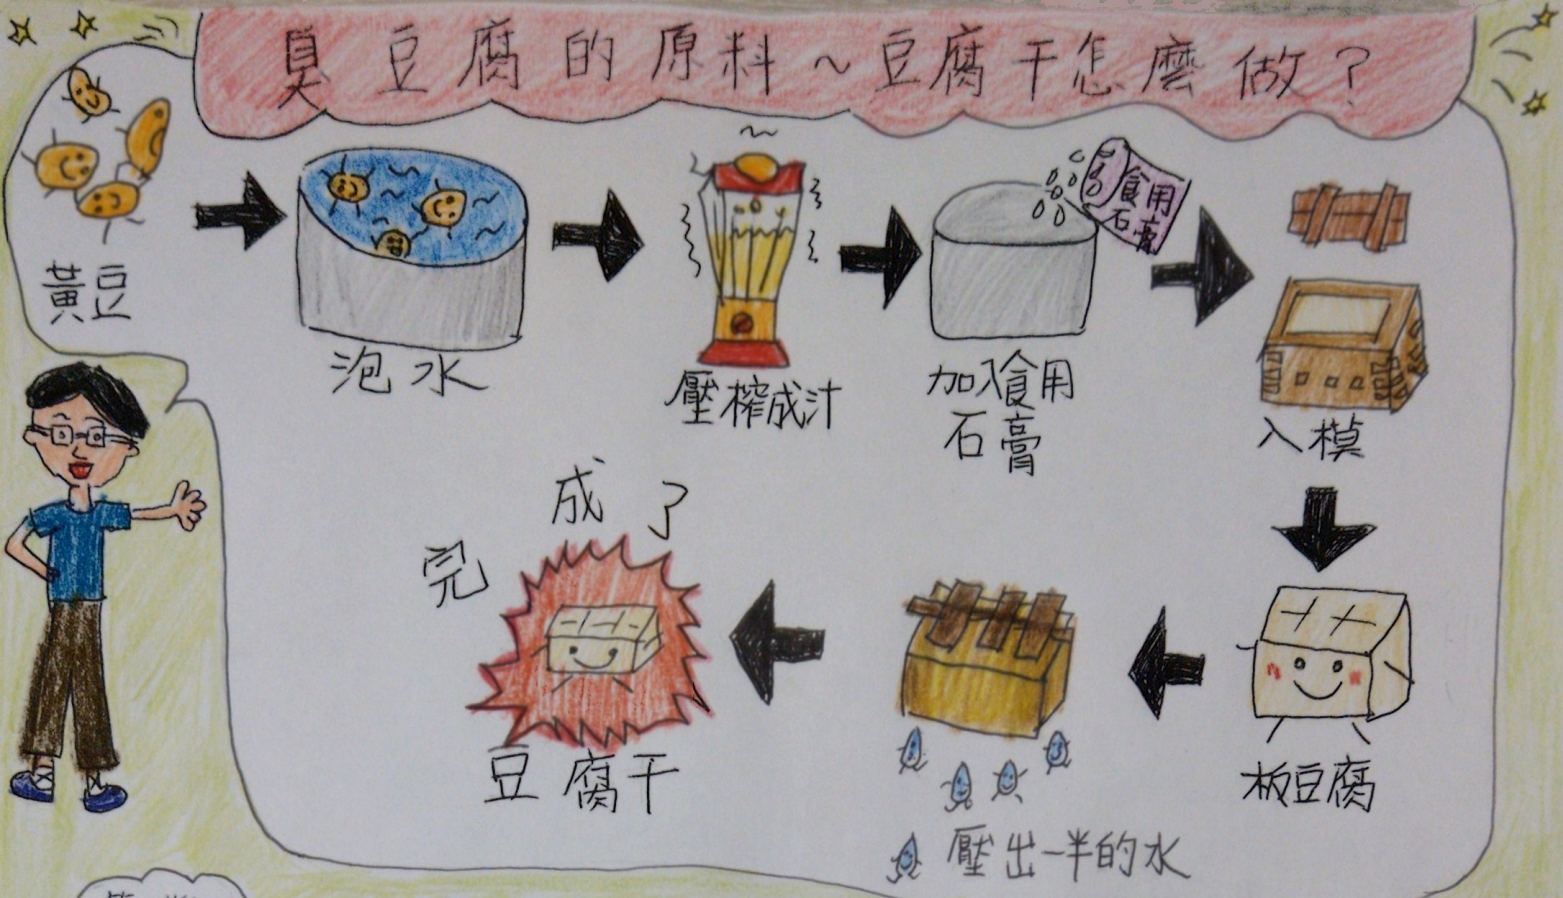 臭豆腐的原料~豆腐干怎麼做?
黃豆
泡水
壓榨成汁
食用
石膏
加入食用
石膏
入模
板豆腐
壓出一半的水
完成了
豆腐干